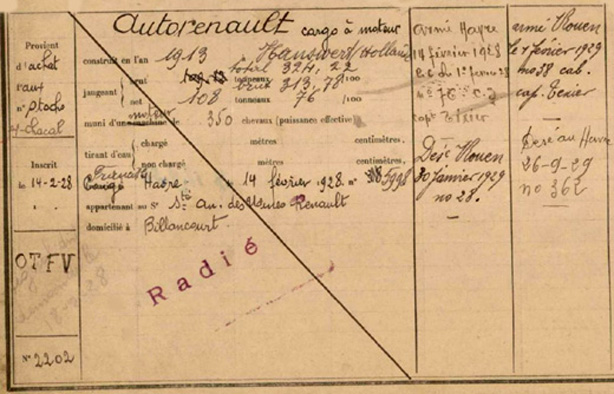 Autorenault cargo à moteur
Provient
d'achat
n° Stocho
construit en l'an 1913 Hanswert/Holland
total 324,22
brut tonneaux brut 313,78 /100
jaugeant
net 108 tonneaux 76 /100
muni d'un moteur machine de 350 chevaux (puissance effective)
chargé mètres centimètres.
tirant d'eau
non chargé mètres centimètres.
Inscrit
le 14-2-28
Havre le 14 février 1928. n° 5998
appartenant au Sr Sté an. des Usines Renault
domicilié à Billancourt.
OTFV
Radié
N° 2202
armé Havre
14 février 1928
cap Texier
Désé Rouen
30 Janvier 1929
no 28.
armé Rouen
le 1 février 1929
no 38 cab.
cap. Texier
Desé au Havre
26-9-29
no 362